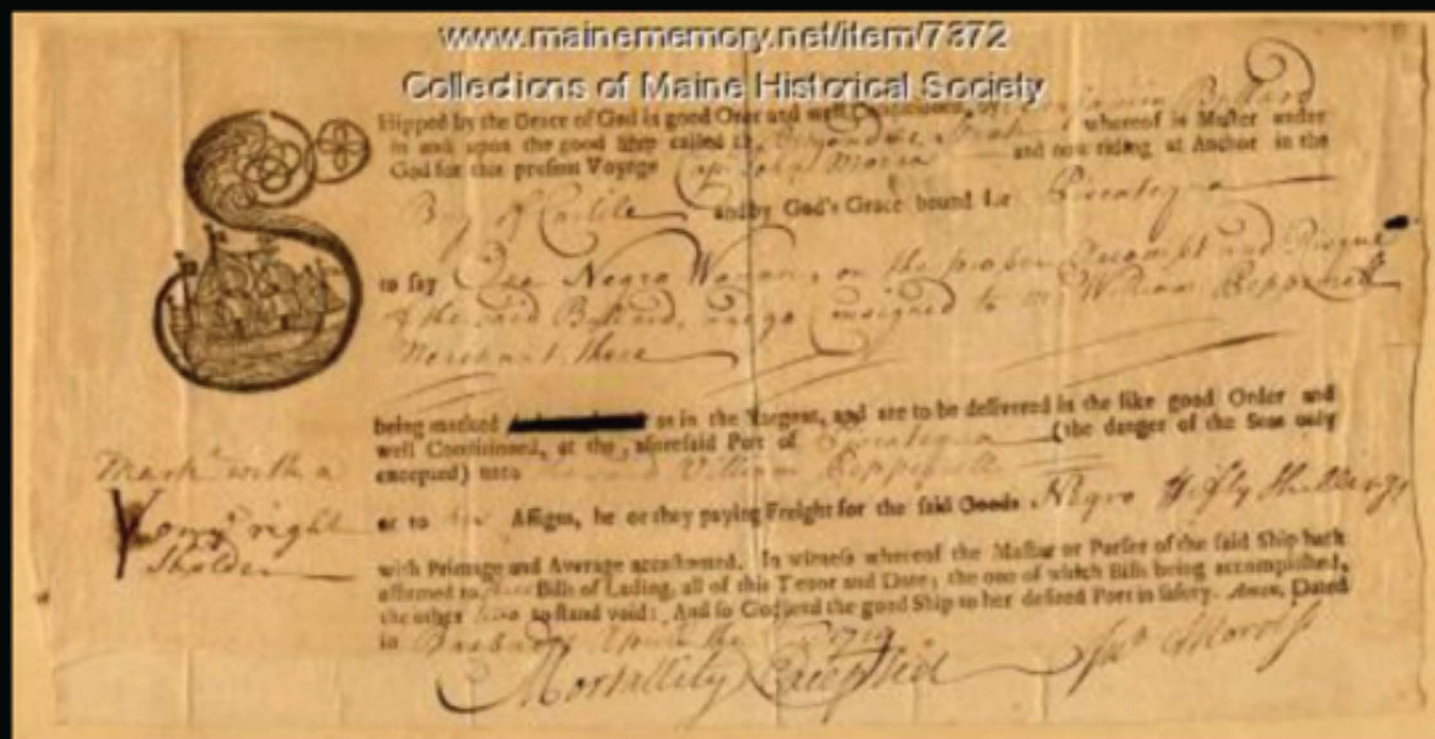 www.mainememory.net/item/7372
Collections of Maine Historical Society
Shipped by the Grace of God in good Order and well Conditioned, by Benjamin Bullard
in and upon the good Ship called the whereof is Master under
God for this present Voyage Cap John Morris and now riding at Anchor in the
Bay of Carlile and by God's Grace bound for Piscatequa
to say One Negro Woman, on the proper Accompt and Risque
of the said Bullard, and go Consigned to Mr William Pepperrell
Merchant there
being marked as in the Margent, and are to be delivered in the like good Order and
well Conditioned, at the aforesaid Port of Piscatequa (the danger of the Seas only
excepted) unto the said William Pepperrell
Markt with a
Y on ye right
Sholder
or to his Assigns, he or they paying Freight for the said Goods Negro Fifty Shillings
with Primage and Average accustomed. In witness whereof the Master or Purser of the said Ship hath
affirmed to three Bills of Lading, all of this Tenor and Date; the one of which Bills being accomplished,
the other two to stand void: And so God send the good Ship to her desired Port in safety. Amen, Dated
in Barbados
Mortallity Excepted Jno Morris